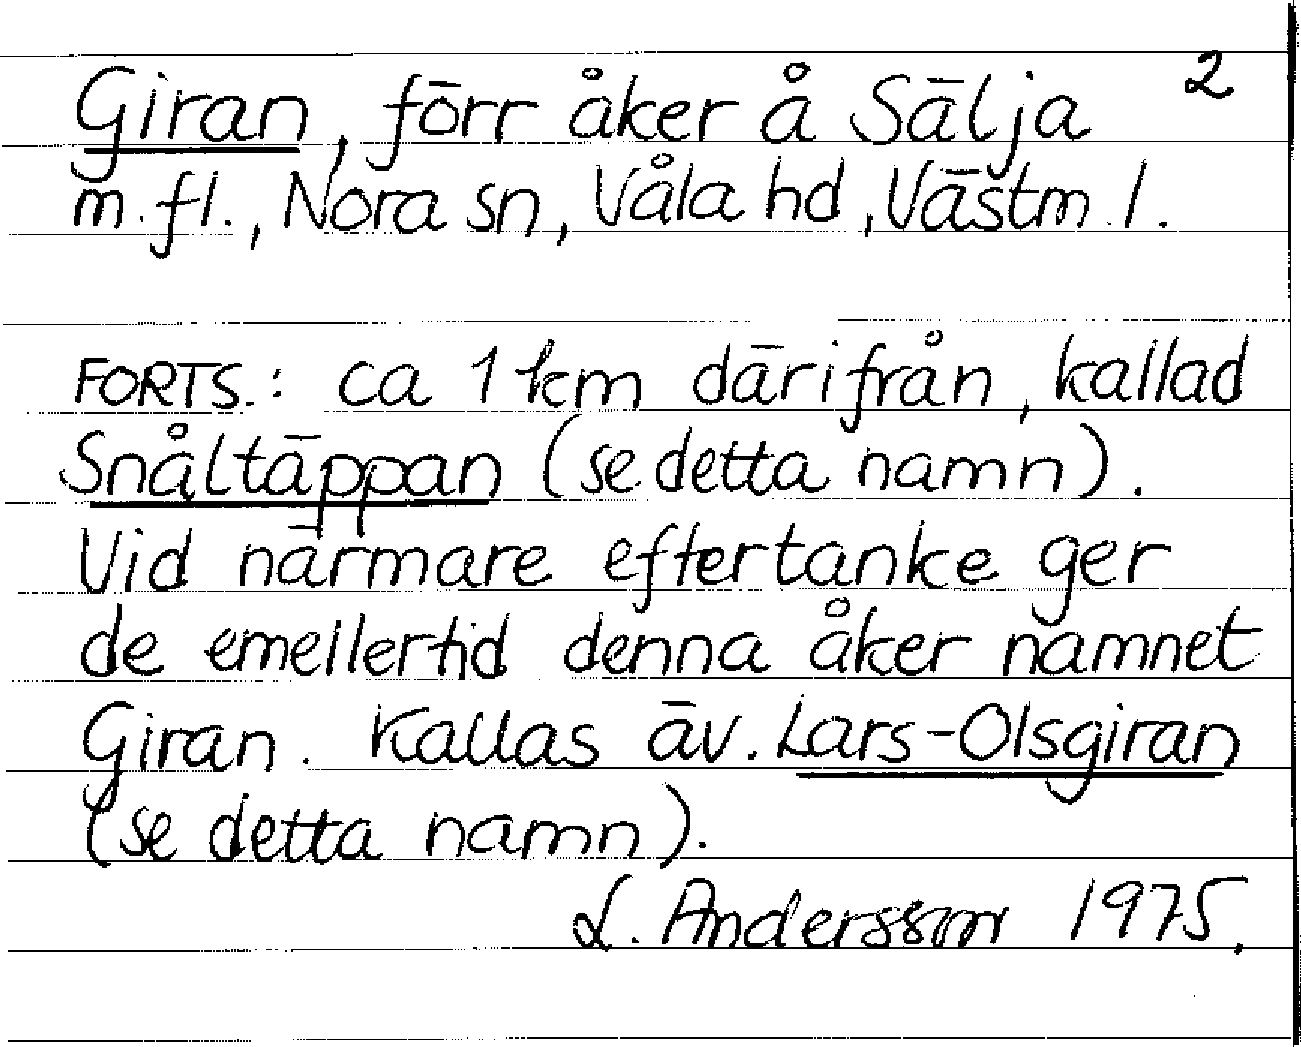 Giran, förr åker å Sälja 2
m.fl., Nora sn, Våla hd, Västm.l.
FORTS.: ca 1 km därifrån, kallad
Snåltäppan (se detta namn).
Vid närmare eftertanke ger
de emellertid denna åker namnet
Giran. Kallas äv. Lars-Olsgiran
(se detta namn).
L. Andersson 1975.